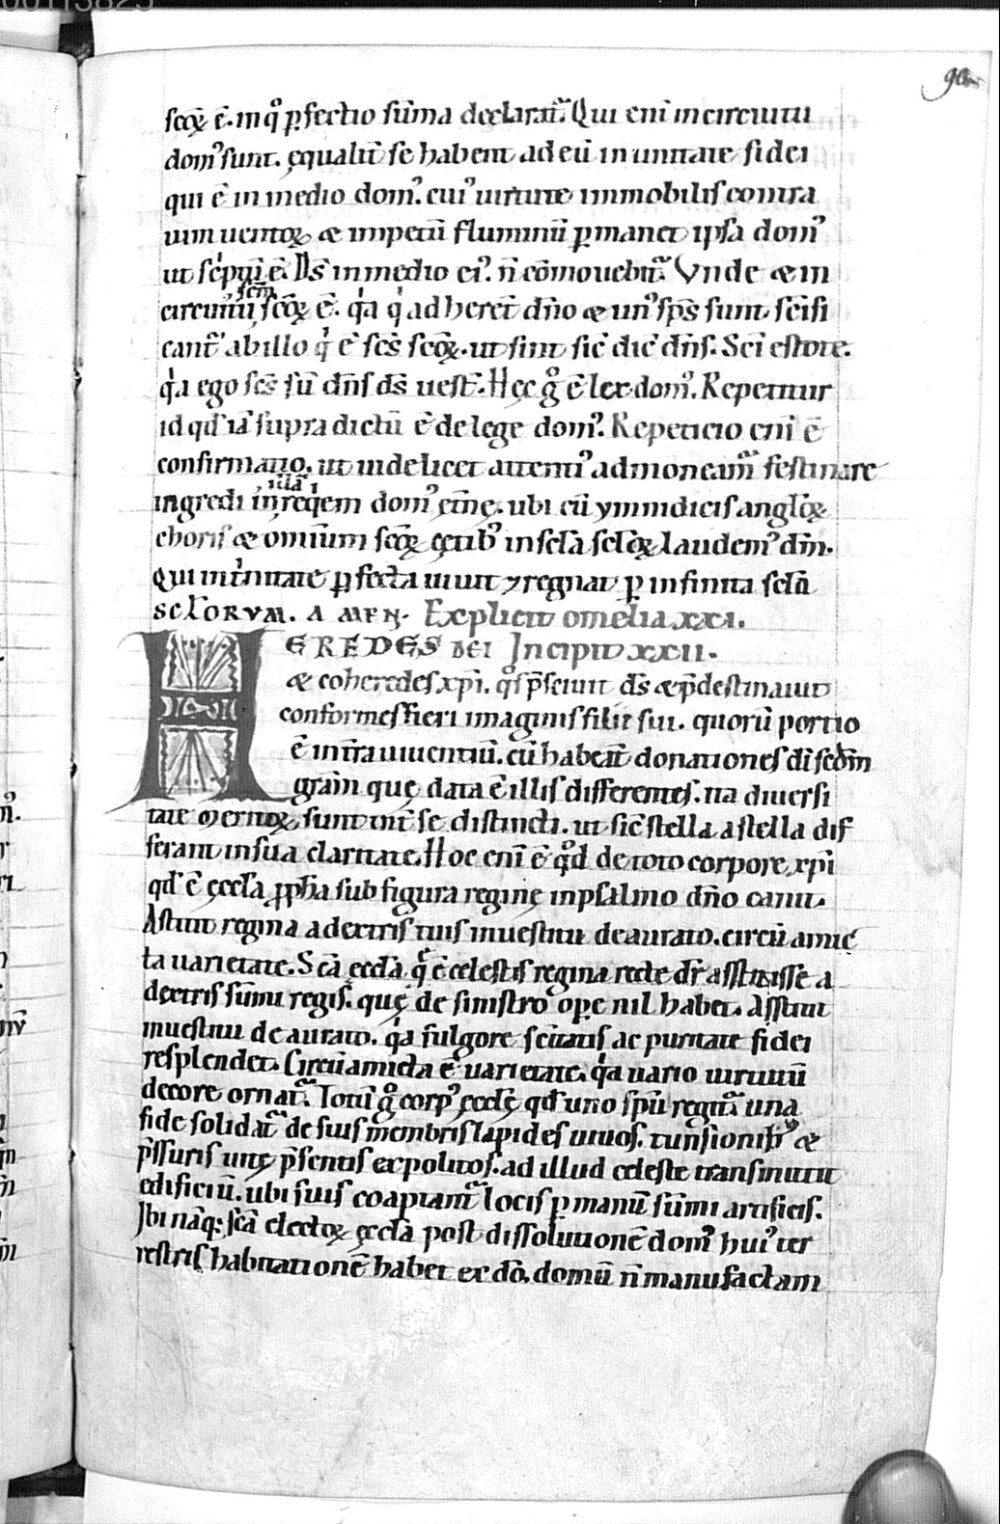 00113825
90
scōꝝ ē. in qͦ ꝑfectio sūma declarat᷑. Qui eni in circuitu
domꝰ sunt. ęqualit̄ se habent ad eū in unitate fidei
qui ē in medio domꝰ. cuiꝰ uirtute immobilis contra
uim uentoꝝ & impetū fluminū ꝑmanet ipsa domꝰ
ut scͥptū ē. Ds̄ in medio eiꝰ. n̄ cōmouebit᷑. Vnde & in
scm̄
circuitu scōꝝ ē. qͥa qͥ adherēt dn̄o & unꝰ sp̄s sunt. sc̄ifi
cant᷑ ab illo qͥ ē sc̄s scōꝝ. ut sint sic̄ dic̄ dn̄s. Sc̄i estote.
qͥa ego sc̄s sū dn̄s ds̄ uest̄. Hęc gͦ ē lex domꝰ. Repetitur
id qd̄ iā supra dictū ē de lege domꝰ. Repeticio eni ē
confirmatio. ut uidelicet attentiꝰ admoneam᷑ festinare
illā
ingredi in reqͥem domꝰ ęt̄nę. ubi cū ymnidicis angl̄oꝝ
choris & omnium scōꝝ cętibꝰ in scl̄a scl̄oꝝ laudemꝰ dm̄.
Qui in tͥnitate ꝑfecta uiuit ⁊ regnat ꝑ infinita scl̄a
SCLORVM. AMEN. Explicit omelia xxi.
HEREDES DEI Incipit xxii.
& coheredes xp̄i. qͦs p̄sciuit ds̄ & p̄destinauit
conformes fieri imaginis filii sui. quorū portio
ē in t̄ra uiuentiū. cū habeāt donationes dī scd̄m
grām quę data ē illis differentes. ita diuersi
tate meritoꝝ sunt int̄ se distincti. ut sic̄ stella a stella dif
ferant in sua claritate. Hoc eni ē qͦd de toto corpore xp̄i
qd̄ ē ęccl̄a ꝓph̄a sub figura reginę in psalmo dn̄o canit.
Astitit regina a dextris tuis in uestitu deaurato. circū amic
ta uarietate. Sc̄a ęccl̄a qͥ ē celestis regina recte dr̄ asstitisse a
dextris sūmi regis. quę de sinistro oꝑe nil habet. Asstitit
in uestitu deaurato. qͥa fulgore sc̄itatis ac puritate fidei
resplendet. Circūamicta ē uarietate. qͥa uario uirtutū
decore ornat᷑. Totū gͦ corpꝰ ęccl̄ę qd̄ uno sp̄u regit᷑ una
fide solidat᷑ de suis membris lapides uiuos. tunsionibꝰ &
p̄ssuris uitę p̄sentis expolitos. ad illud celeste transmittit
edificiū. ubi suis coaptant᷑ locis ꝑ manū sūmi artificis.
Ibi nāq; sc̄a electoꝝ ęccl̄a post dissolutionē domꝰ huiꝰ ter
restris habitationē habet ex dō. domū n̄ manufactam